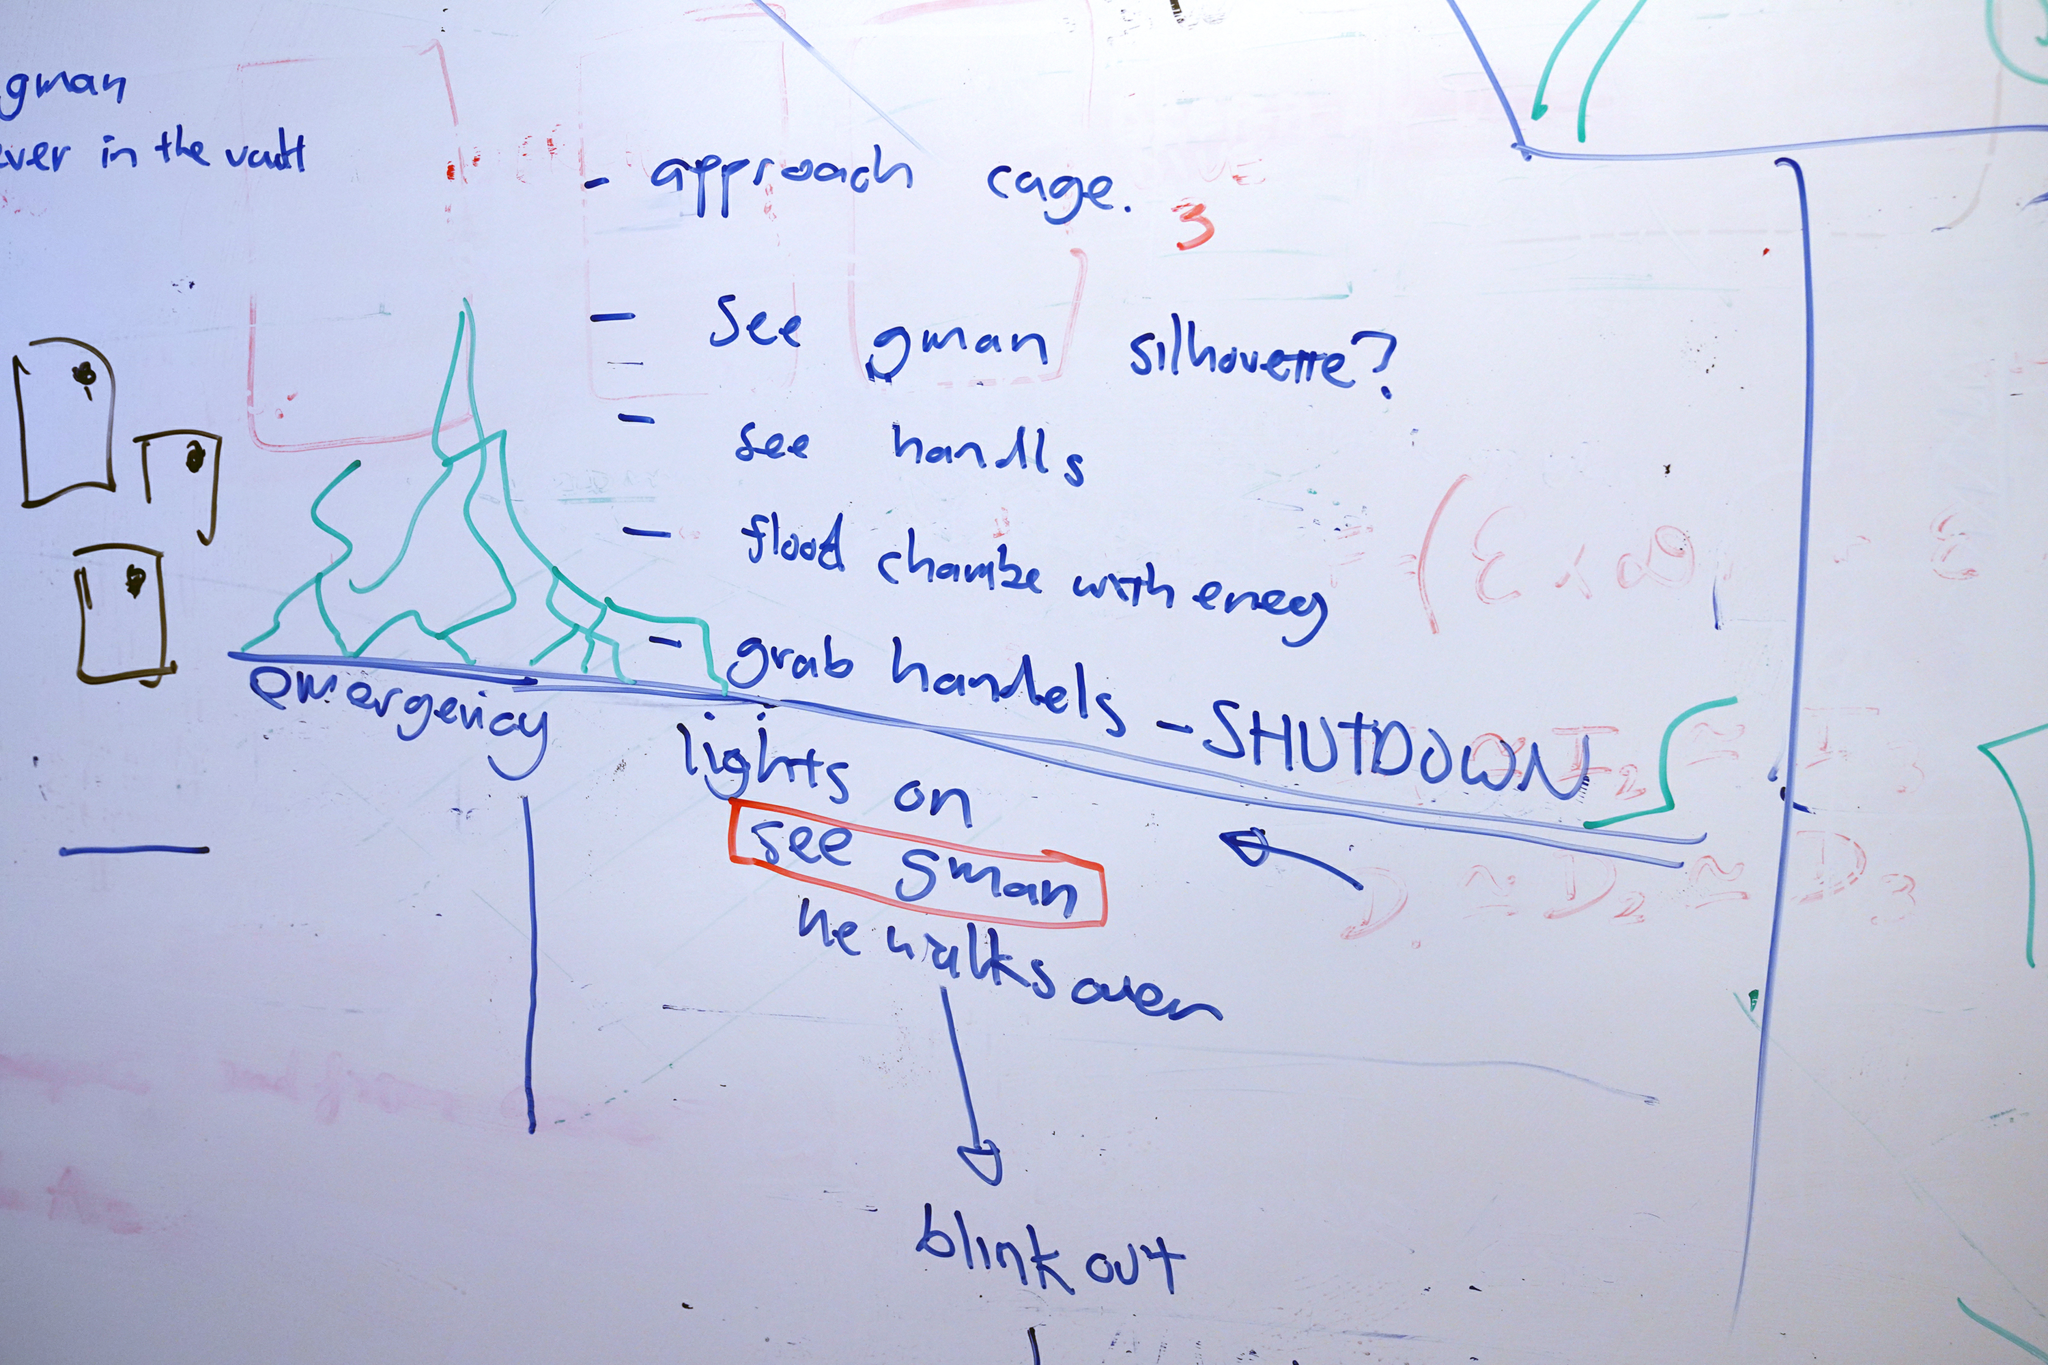 gman
ever in the vault
- approach cage.
3
- see gman silhouette?
- see handls
- flood chambe with eneg
- grab handels - SHUTDOWN
emergency
lights on
see gman
he walks over
blink out
D. ≃ D2 ≃ D3